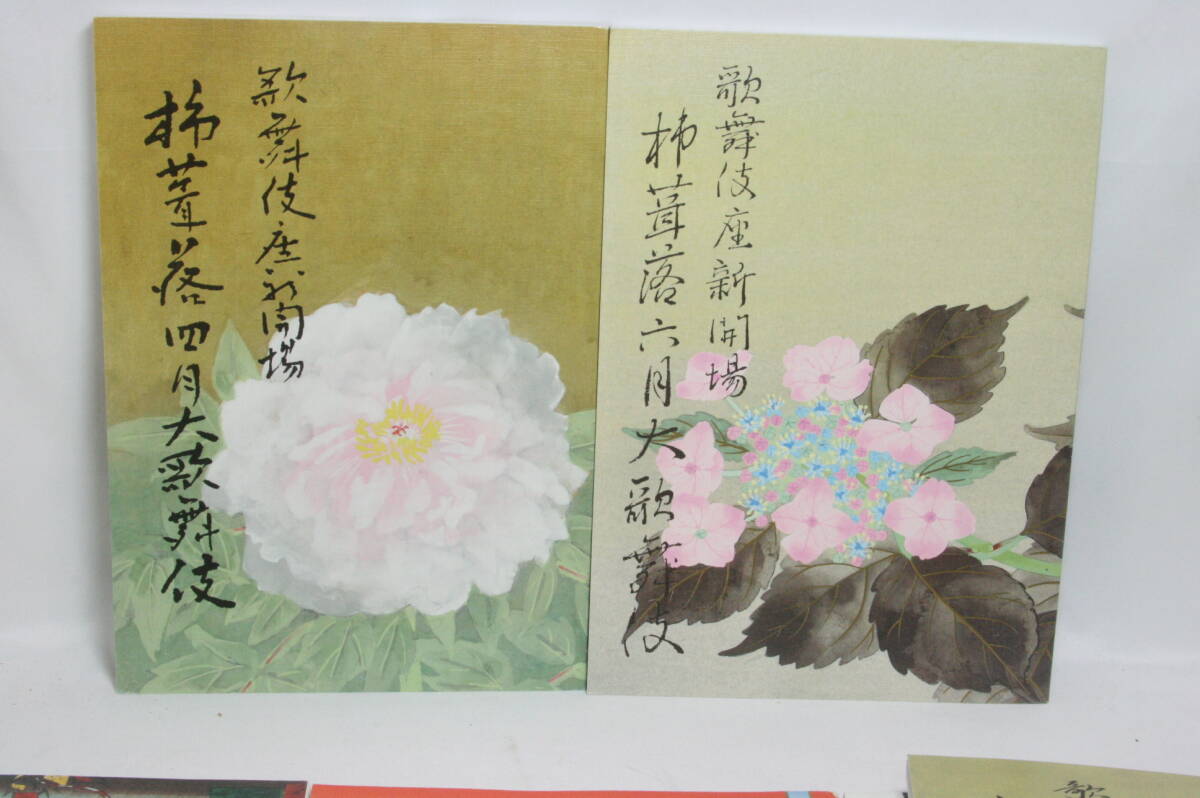 歌舞伎座新開場
杮葺落四月大歌舞伎
歌舞伎座新開場
杮葺落六月大歌舞伎
歌